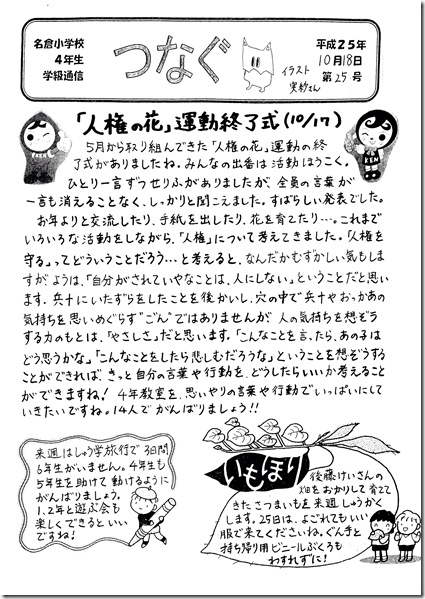 名倉小学校
4年生
学級通信
つなぐ
イラスト
実紗さん
平成25年
10月18日
第25号
「人権の花」運動終了式(10/17)
5月から取り組んできた「人権の花」運動の終
了式がありましたね。みんなの出番は活動ほうこく。
ひとり一言ずつせりふがありましたが、全員の言葉が
一言も消えることなく、しっかりと聞こえました。すばらしい発表でした。
お年よりと交流したり、手紙を出したり、花を育てたり…。これまで
いろいろな活動をしながら、「人権」について考えてきました。「人権を
守る」ってどういうことだろう…と考えると、なんだかむずかしい気もしま
すが、ようは、「自分がされていやなことは、人にしない」ということだと思い
ます。兵十にいたずらをしたことを後かいし、穴の中で兵十やおっかあの
気持ちを思いめぐらす"ごん"ではありませんが、人の気持ちを想ぞう
する力のもとは、「やさしさ」だと思います。「こんなことを言ったら、あの子は
どう思うかな」「こんなことをしたら悲しむだろうな」ということを想ぞうする
ことができれば、きっと自分の言葉や行動を、どうしたらいいか考えること
ができますね! 4年教室を、思いやりの言葉や行動でいっぱいにして
いきたいですね。14人でがんばりましょう!!
来週はしゅう学旅行で3日間
6年生がいません。4年生も
5年生を助けて動けるように
がんばりましょう。
1、2年と遊ぶ会も
楽しくできるといい
ですね!
いもほり
後藤けいさんの
畑をおかりして育てて
きたさつまいもを来週しゅうかく
します。25日は、よごれてもいい
服で来てくださいね。ぐん手と
持ち帰り用ビニールぶくろも
わすれずに!
KEN